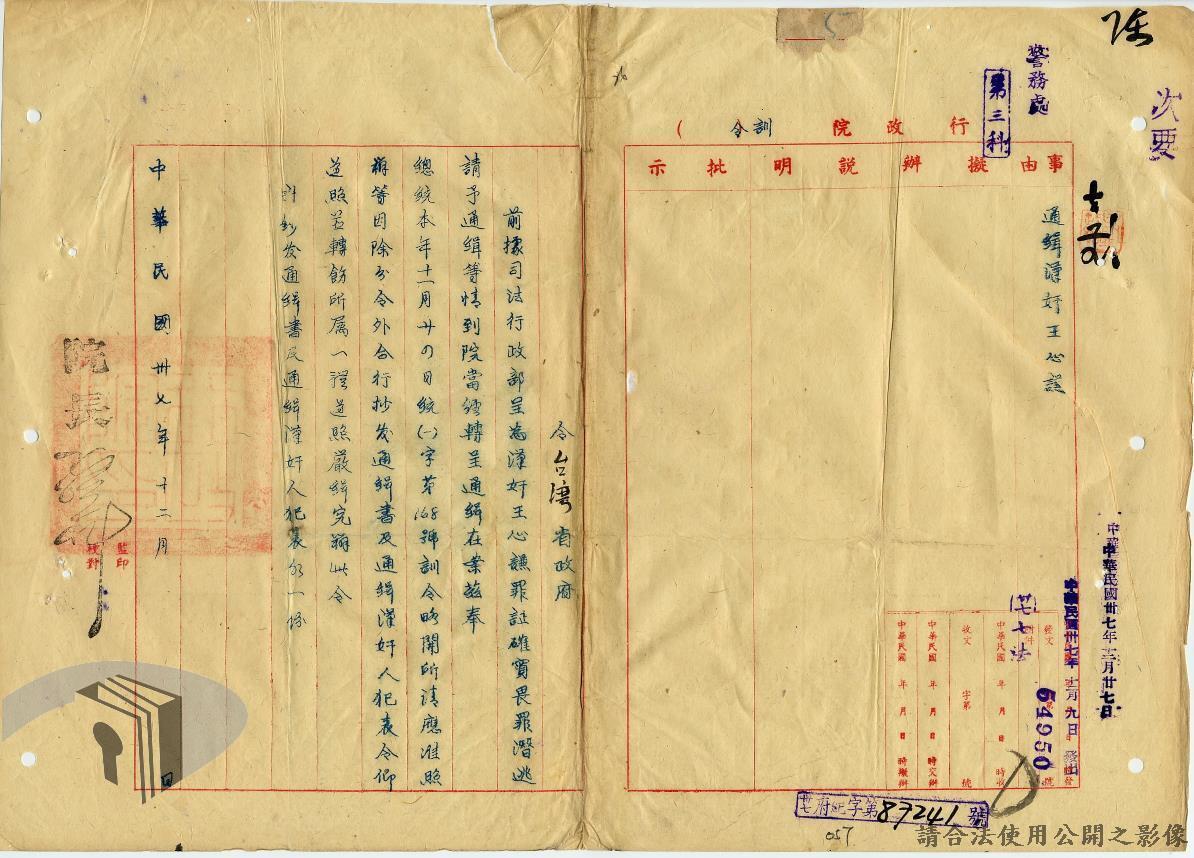 次要
警務處
第三科
行政院(訓令)
事由
擬辦
說明
批示
通緝漢奸王心謨
中華民國卅七年十二月廿七日
中華民國卅七年十二月九日發出
卅七法
54950
發文
附件
號
中華民國 年 月 日 時收
收文 字第 號
中華民國 年 月 日 時交辦
中華民國 年 月 日 時擬辦
府紀字第87241號
057
令台灣省政府
前據司法行政部呈為漢奸王心謨罪証確實畏罪潛逃
請予通緝等情到院當經轉呈通緝在案茲奉
總統本年十一月廿四日統(一)字第168號訓令略開所請應准照
辦等因除分令外合行抄發通緝書及通緝漢奸人犯表令仰
遵照並轉飭所属一體遵照嚴緝究辦此令
計鈔发通緝書及通緝漢奸人犯表各一份
中華民國卅七年十二月 日
院長孫
監印
校對
請合法使用公開之影像